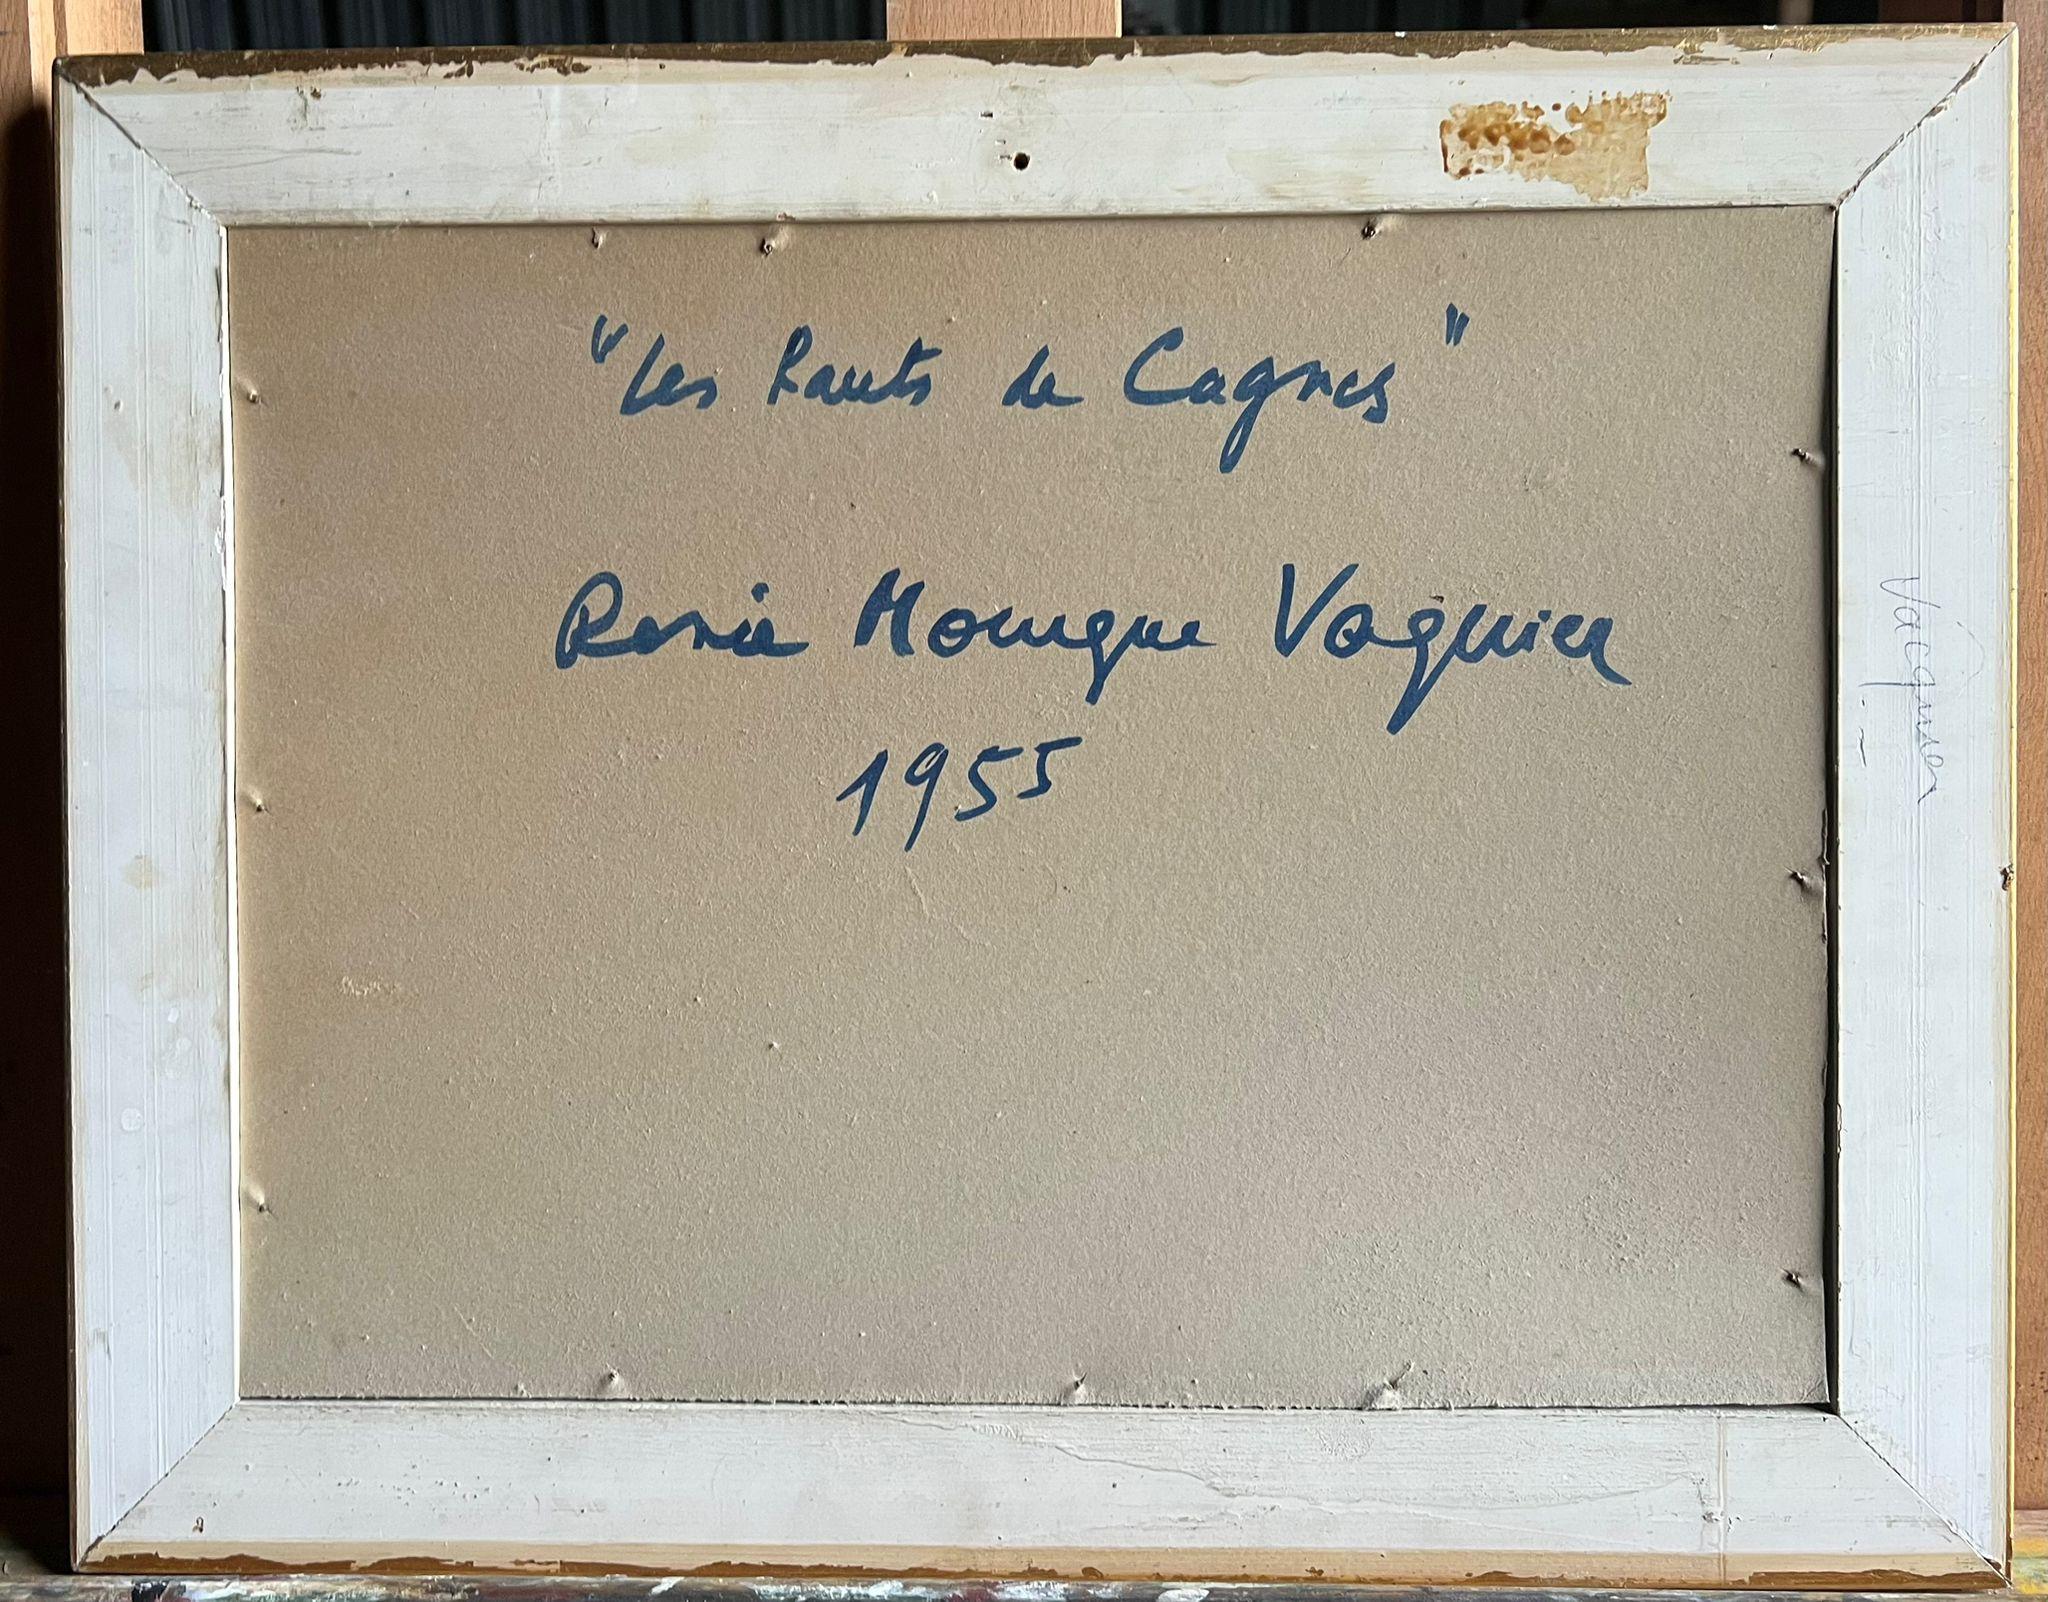 "Les Hauts de Cagnes"
Marie Monique Vaquier
1955
Vacquier